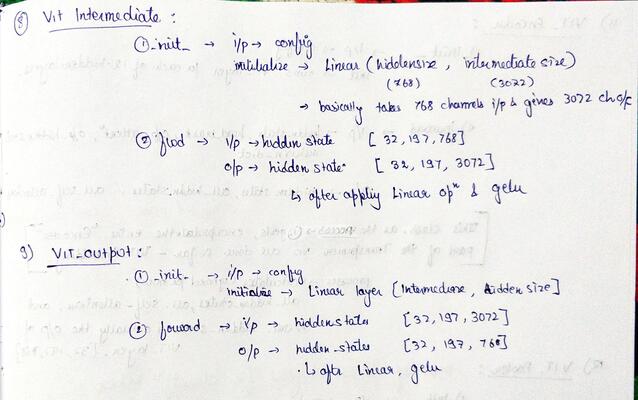 8) Vit Intermediate :
① _init_ → i/p → config
initialize → Linear (hiddensize, intermediate size)
(768) (3072)
→ basically takes 768 channels i/p & gives 3072 ch o/p
② fwd → i/p → hidden state [32, 197, 768]
o/p → hidden state [32, 197, 3072]
↳ after appliy Linear opⁿ & gelu
9) VIT_output :
① _init_ → i/p → config
initialize → Linear layer [Intermediate, hidden size]
② forward → i/p → hiddenstates [32, 197, 3072]
o/p → hidden_states [32, 197, 768]
↳ after Linear, gelu